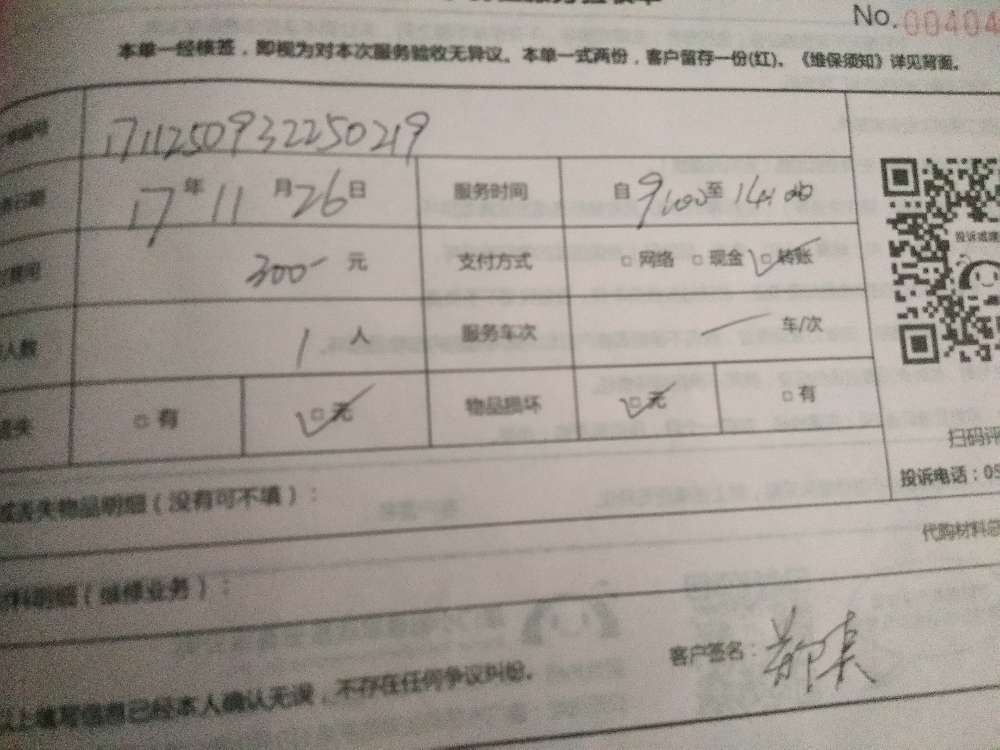 No.00404
本单一经核签，即视为对本次服务验收无异议。本单一式两份，客户留存一份(红)。《维保须知》详见背面。
编号 1711250932250219
日期 17年11月26日 服务时间 自9:00至14:00
费用 300- 元 支付方式 □网络 □现金 □转账
人数 1 人 服务车次 车/次
丢失 □有 □无 物品损坏 □无 □有
扫码评
投诉电话：05
或丢失物品明细（没有可不填）：
代购材料总
材料明细（维修业务）：
客户签名：
以上填写信息已经本人确认无误，不存在任何争议纠纷。